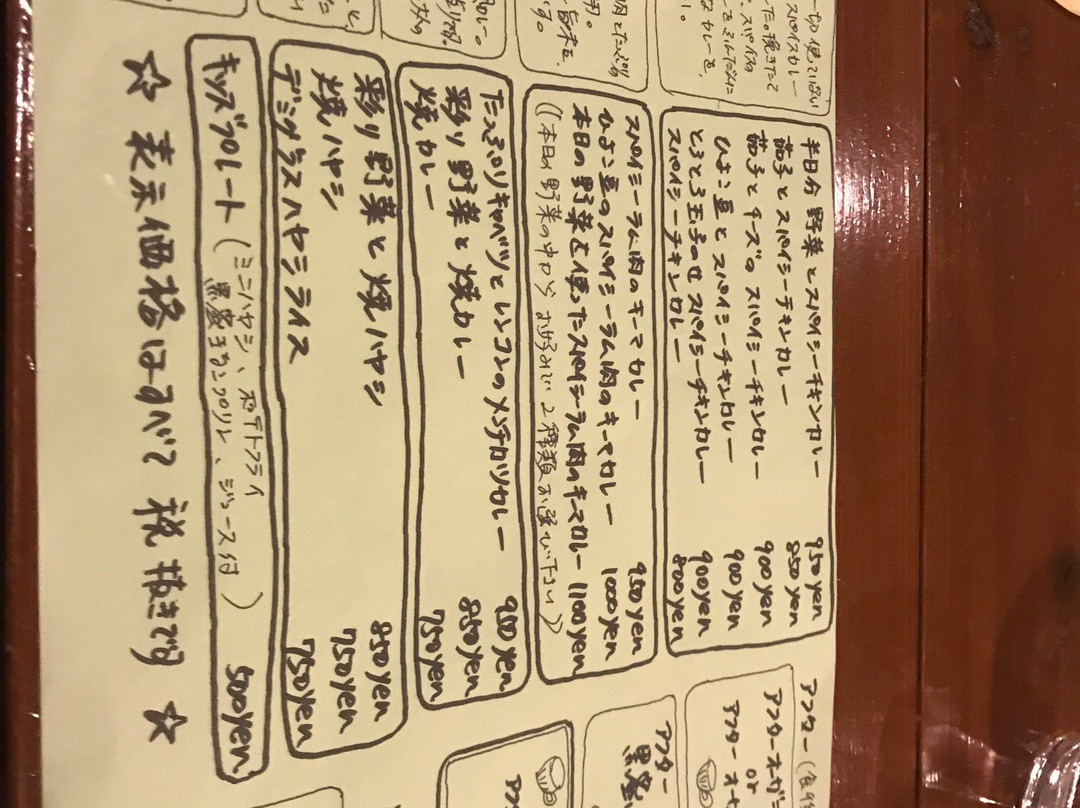 一切使っていない
スパイスカレー
た。挽きたて
スパイスの
なカレーを、
半日分野菜とスパイシーチキンカレー 950yen
茄子とスパイシーチキンカレー 850yen
茄子とチーズのスパイシーチキンカレー 900yen
ひよこ豆とスパイシーチキンカレー 900yen
とろとろ玉子のせスパイシーチキンカレー 900yen
スパイシーチキンカレー 800yen
スパイシーラム肉のキーマカレー 950yen
ひよこ豆のスパイシーラム肉のキーマカレー 1000yen
本日の野菜を使ったスパイシーラム肉のキーマカレー 1100yen
((本日の野菜の中からお好みで2種類お選び下さい))
たっぷりキャベツとレンコンのメンチカツカレー 950yen
彩り野菜と焼カレー 850yen
焼カレー 750yen
彩り野菜と焼ハヤシ 850yen
焼ハヤシ 750yen
デミグラスハヤシライス 750yen
キッズプレート (ミニハヤシ、ポテトフライ
黒蜜きなこプリン、ジュース付) 500yen
☆ 表示価格はすべて税抜きです ☆
アフター
アフターオーガニ
or
アフター
アフター
黒蜜